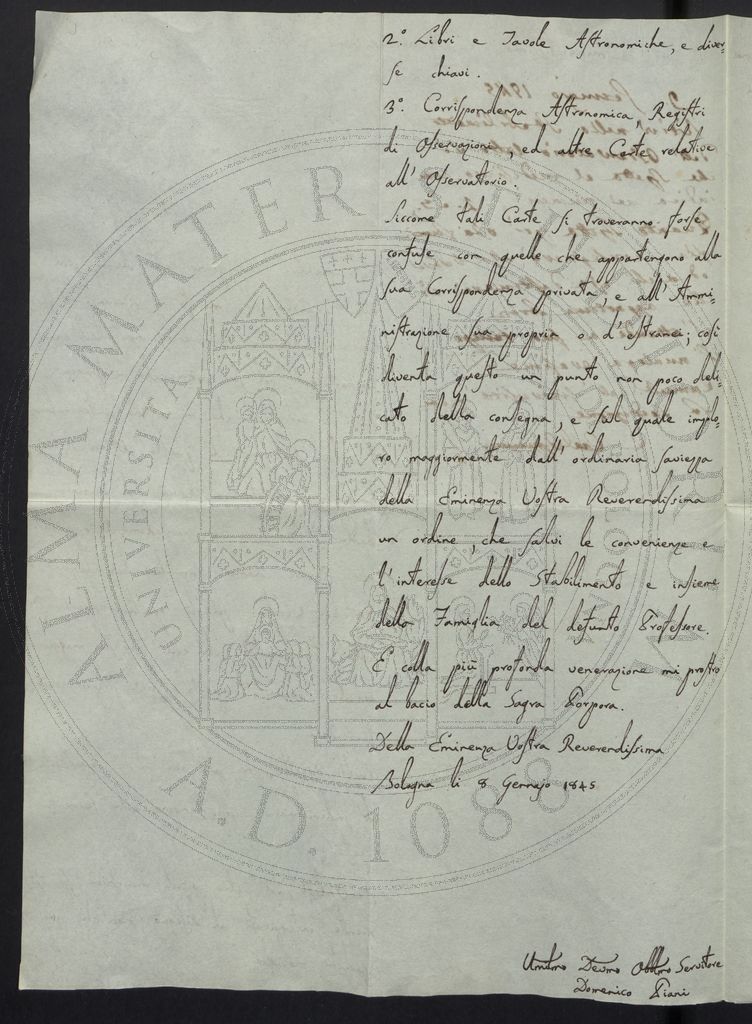 2.° Libri e Tavole Astronomiche, e diver-
se chiavi.
3.° Corrispondenza Astronomica, Registri
di Osservazioni, ed altre Carte relative
all' Osservatorio.
Siccome tali Carte si troveranno forse
confuse con quelle che appartengono alla
sua Corrispondenza privata, e all' Ammi-
nistrazione sua propria o d' estranei; così
diventa questo un punto non poco deli-
cato della consegna, e sul quale implo-
ro maggiormente dall' ordinaria saviezza
della Eminenza Vostra Reverendissima
un ordine, che salvi le convenienze e
l' interesse dello Stabilimento e insieme
della Famiglia del defunto Professore.
E colla più profonda venerazione mi prostro
al bacio della Sagra Porpora.
Della Eminenza Vostra Reverendissima
Bologna li 8 Gennajo 1845
Umilmo Devmo Obblmo Servitore
Domenico Piani
ALMA MATER
UNIVERSITA
A.D. 1088